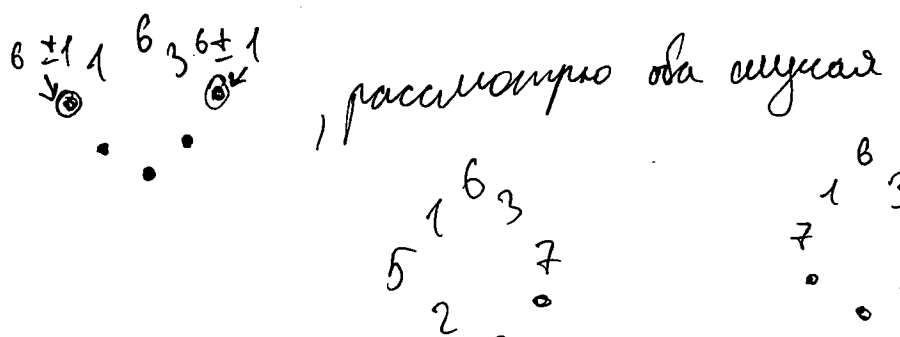 6 ±1 1 6 3 6± 1
, рассмотрю оба случая
6
1 3
5 7
2
6
1 3
7